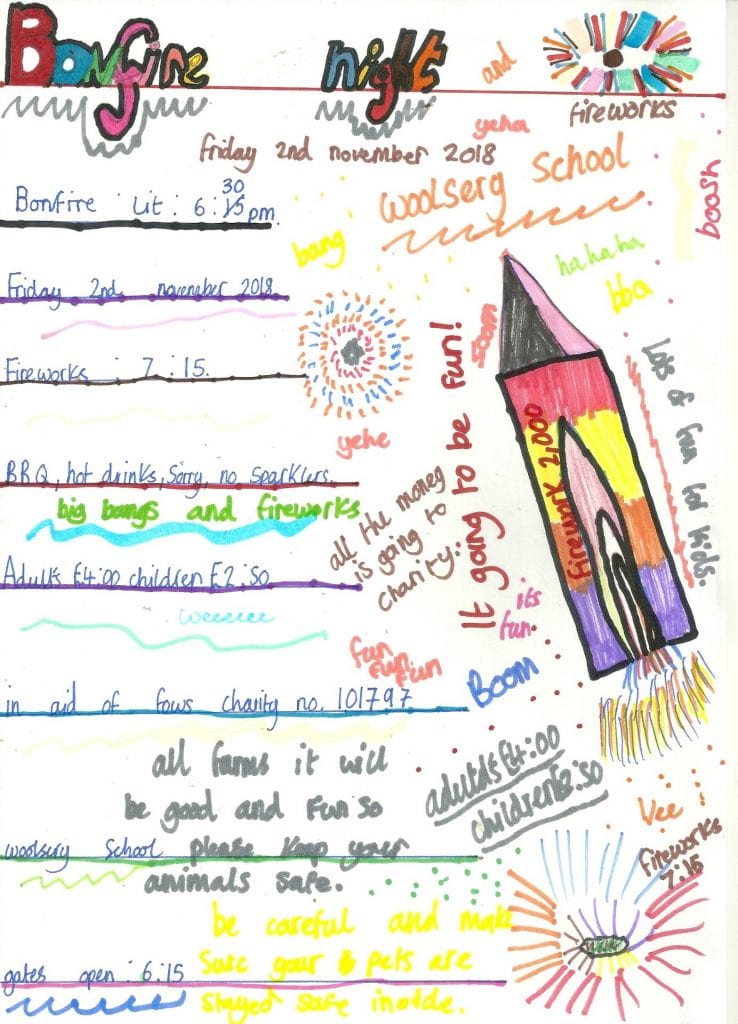 Bonfire night and
fireworks
yeha
friday 2nd november 2018
woolserg school
boosh
Bonfire Lit : 6 : 30 pm
bang
hahaha
bba
Friday 2nd noveneber 2018
zoom
It going to be fun!
Lots of fun for kids.
Fireworks : 7 : 15.
firework 2,000
yehe
BBQ, hot drinks, Sorry, no sparklers.
big bangs and fireworks
all the money
is going to
charity.
Adults £4:00 children £2:50
weeeeee
its
fun.
fun
fun
fun
Boom
in aid of fows charity no. 101797
all farms it will
be good and fun so
adults £4:00
children £2:50
Vee
fireworks
7.15
woolsery School please keep your
animals safe.
be careful and make
gates open : 6:15 Sure your pets are
stayed safe inside.